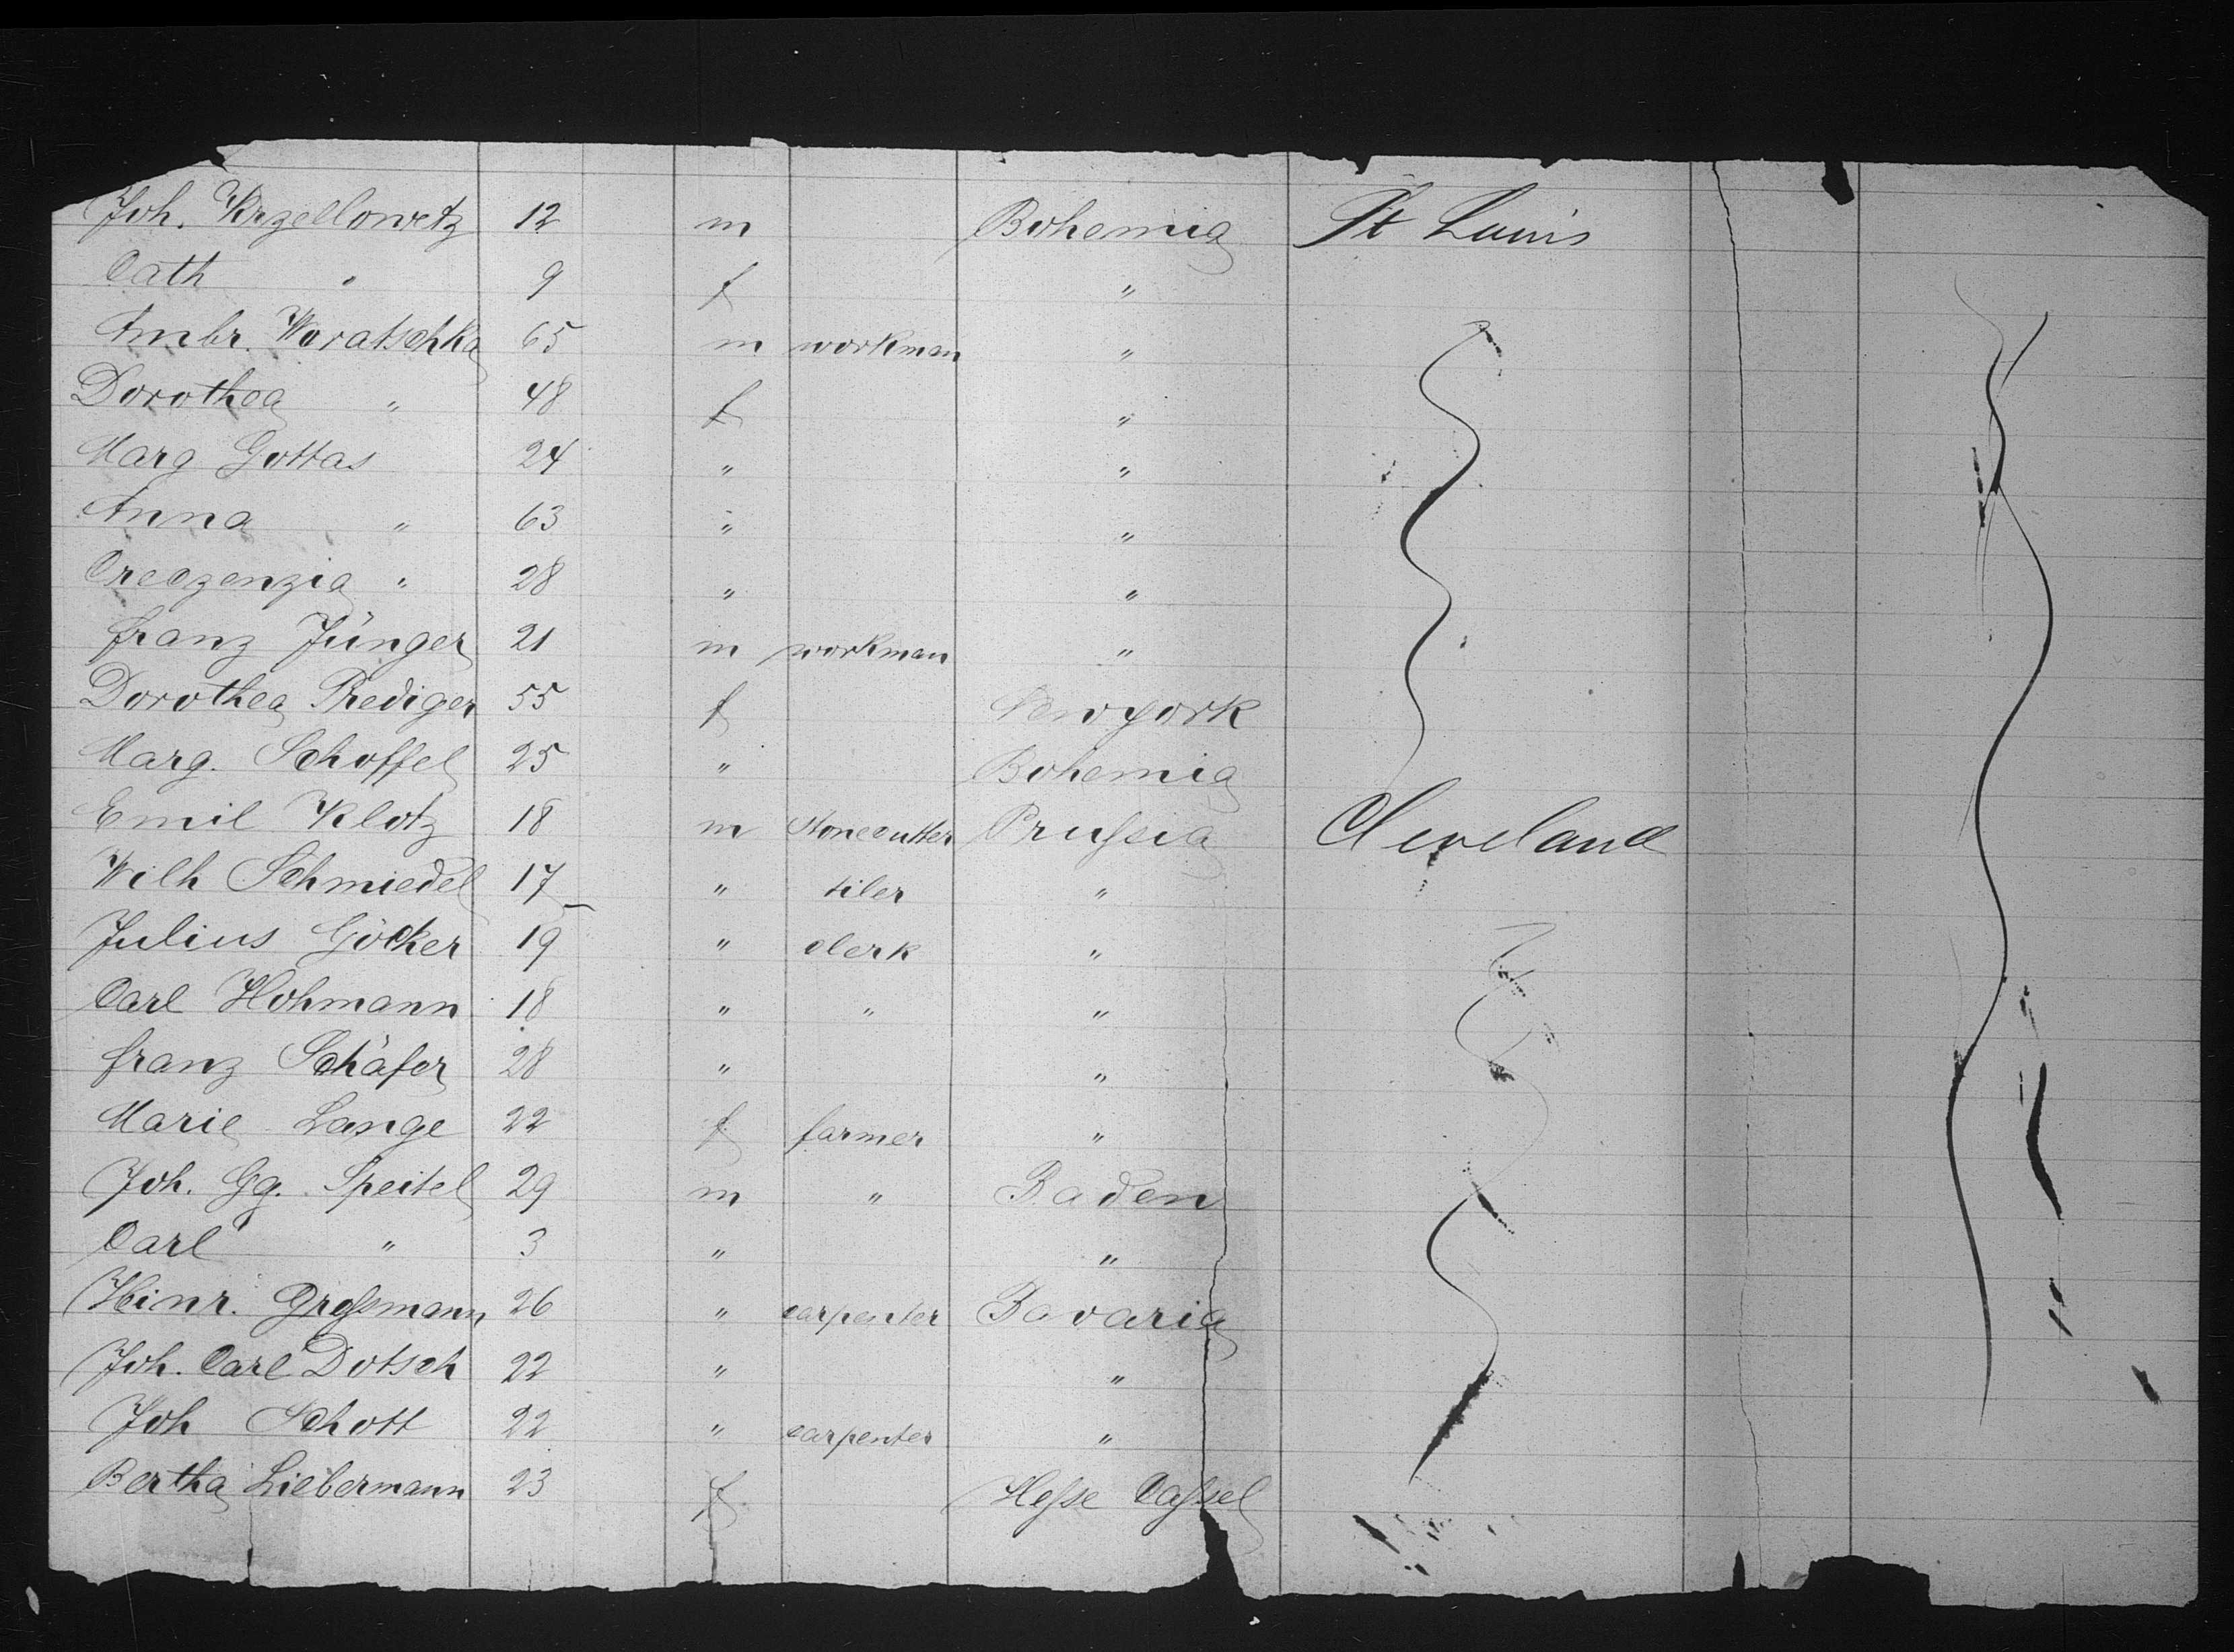 Joh. Krzellowetz 12 m Bohemia St Louis
Cath " 9 f "
Ambr. Woratschka 65 m workman "
Dorothea " 48 f "
Marg Gottas 24 " "
Anna " 63 " "
Creczenzia " 28 " "
Franz Jünger 21 m workman "
Dorothea Prediger 55 f Newyork
Marg. Schoffel 25 " Bohemia
Emil Klotz 18 m Stonecutter Prussia Cleveland
Wilh Schmiedel 17 " tiler "
Julius Göcker 19 " clerk "
Carl Hohmann 18 " " "
Franz Schäfer 28 " "
Marie Lange 22 f farmer "
Joh. Gg. Speitel 29 m " Baden
Carl " 3 " "
Heinr. Grossmann 26 " carpenter Bavaria
Joh. Carl Dotsch 22 " "
Joh Schott 22 " carpenter "
Bertha Liebermann 23 f Hesse Cassel